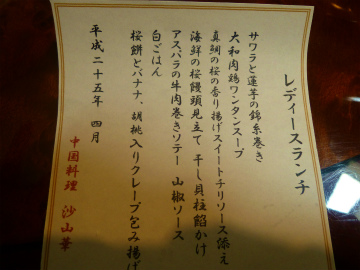 レディースランチ
サワラと蓮芋の錦糸巻き
大和肉鶏ワンタンスープ
真鯛の桜の香り揚げスイートチリソース添え
海鮮の桜饅頭見立て 干し貝柱餡かけ
アスパラの牛肉巻きソテー 山椒ソース
白ごはん
桜餅とバナナ、胡桃入りクレープ包み揚げ
平成二十五年 四月
中国料理 沙山華